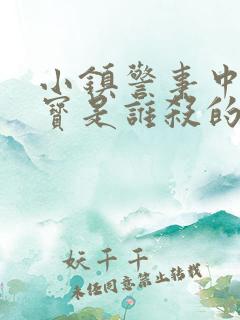 小鎮警事中
寶是誰殺的
妖千千
未經同意禁止轉載